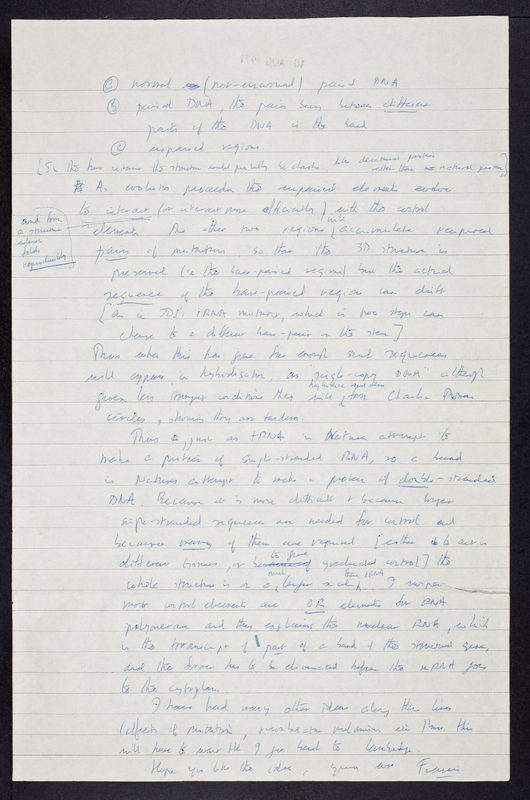 (a) normal (non-unwound) paired DNA
(b) paired DNA, the pairs being between different
parts of the DNA in the band
(c) unpaired regions.
[So the two versions the structure would probably be chaotic like denatured protein
rather than native protein]
As evolution proceeds the unpaired elements evolve
to interact (or interact more efficiently) with the control
and form
a structure
which
folds
reproducibly
elements. The other two regions will accumulate reciprocal
pairs of mutations, so that the 3D structure is
preserved (i.e the base-paired regions) but the actual
sequence of the base-paired region can drift
[as in tRNA mutants, which in two steps can
change to a different base-pair in the stem]
Thus when this has gone far enough such sequences
will appear, in hybridisation, as "single-copy DNA" although
given less stringent conditions they will hybridise and show from Charlie Thomas
circles, showing they are tandem.
Thus, just as tRNA is Nature's attempt to
make a protein of single-stranded RNA, so a band
is Nature's attempt to make a protein of double-stranded
DNA. Because it is more difficult & because longer
single-stranded sequences are needed for control and
because many of them are required [either to act in
different tissues, or to give graduated control] the
whole structure is on a much larger scale than tRNA. I suspect
most control elements are OR elements for RNA
polymerase and this explains the nuclear RNA, which
is the transcript of part of a band + the structural gene,
and the former has to be eliminated before the mRNA goes
to the cytoplasm.
I have had many other ideas along these lines
(effects of mutation, recombination mechanism etc) but this
will have to wait till I get back to Cambridge.
Hope you like the idea, yours ever Francis